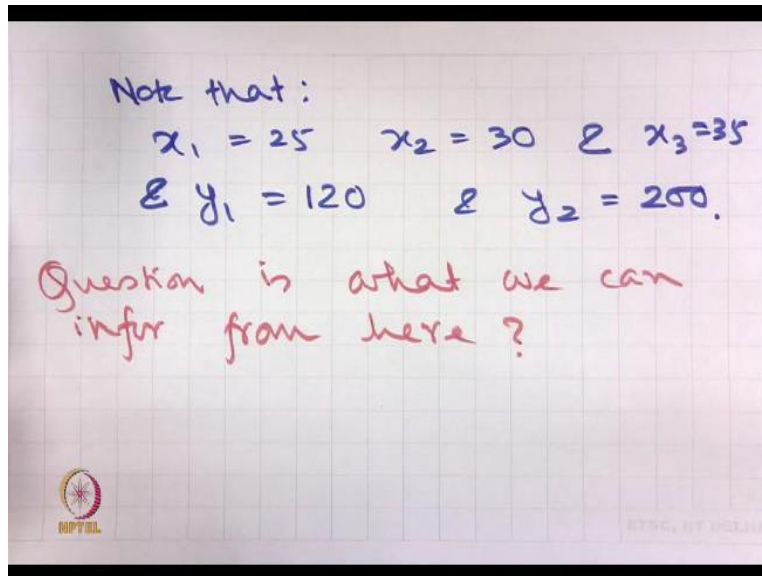 Note that:
x₁ = 25 x₂ = 30 & x₃ = 35
& y₁ = 120 & y₂ = 200.
Question is what we can
infer from here ?
NPTEL
ETSC, IIT DELHI